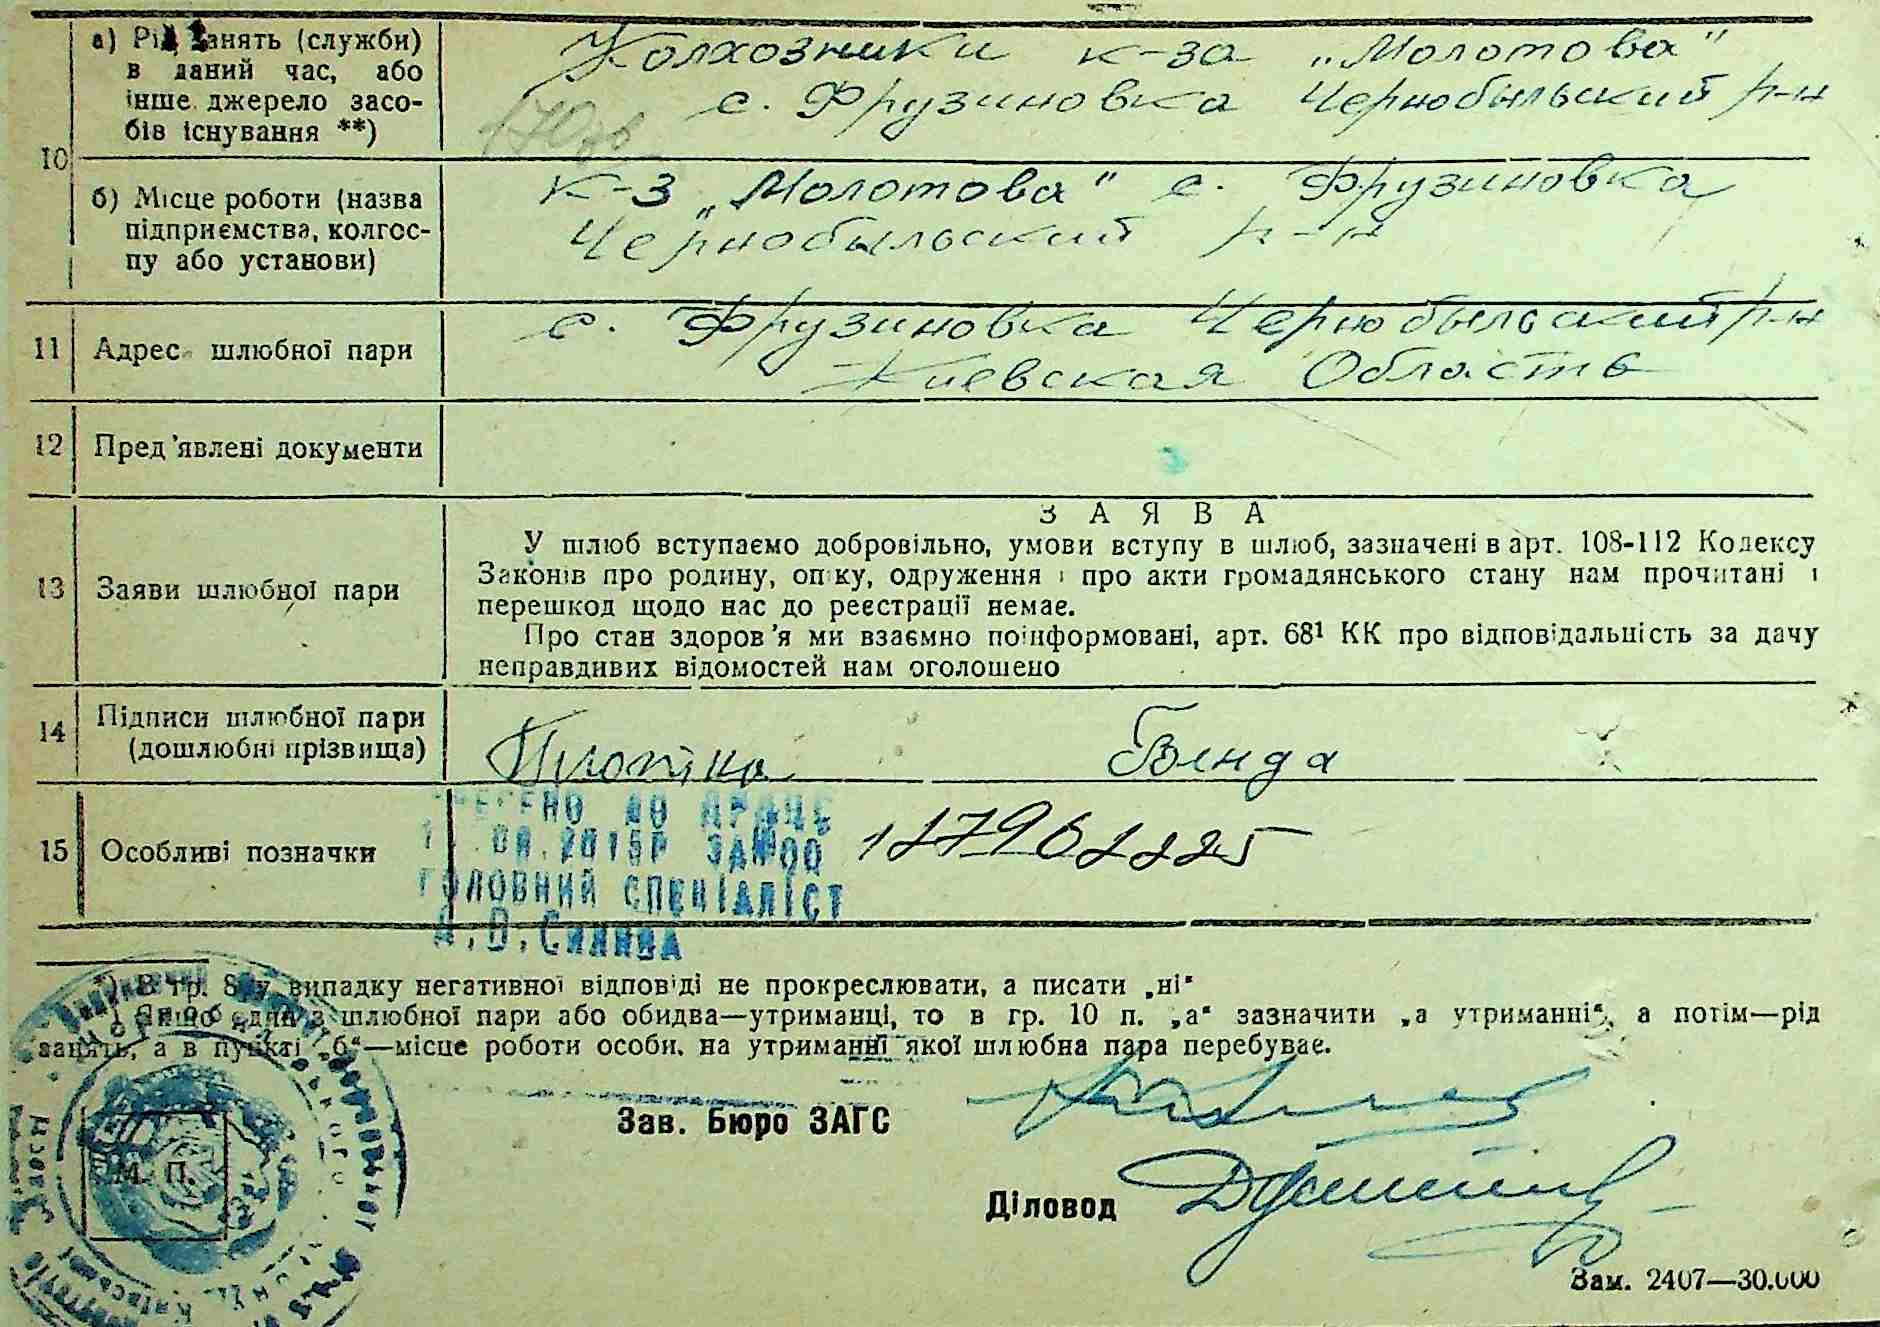 10
а) Рід занять (служби)
в даний час, або
інше джерело засо-
бів існування **)
Колхозники к-за „Молотова"
с. Фрузиновка Чернобыльский р-н
б) Місце роботи (назва
підприємства, колгос-
пу або установи)
к-з „Молотова" с. Фрузиновка
Чернобыльский р-н
11
Адрес шлюбної пари
с. Фрузиновка Чернобыльский р-н
Киевская Область
12
Пред'явлені документи
13
Заяви шлюбної пари
ЗАЯВА
У шлюб вступаємо добровільно, умови вступу в шлюб, зазначені в арт. 108-112 Кодексу
Законів про родину, опіку, одруження і про акти громадянського стану нам прочитані і
перешкод щодо нас до реєстрації немає.
Про стан здоров'я ми взаємно поінформовані, арт. 68¹ КК про відповідальність за дачу
неправдивих відомостей нам оголошено
14
Підписи шлюбної пари
(дошлюбні прізвища)
Бенда
15
Особливі позначки
ДО ДРАЦС
.08.2015Р ЗА №00
ГОЛОВНИЙ СПЕЦІАЛІСТ
*) В гр. 8 у випадку негативної відповіді не прокреслювати, а писати „ні"
Якщо один з шлюбної пари або обидва—утриманці, то в гр. 10 п. „а" зазначити „а утриманні", а потім—рід
занять, а в пункті „б"—місце роботи особи, на утриманні якої шлюбна пара перебуває.
Зав. Бюро ЗАГС
М. П.
Діловод
Зам. 2407—30.000